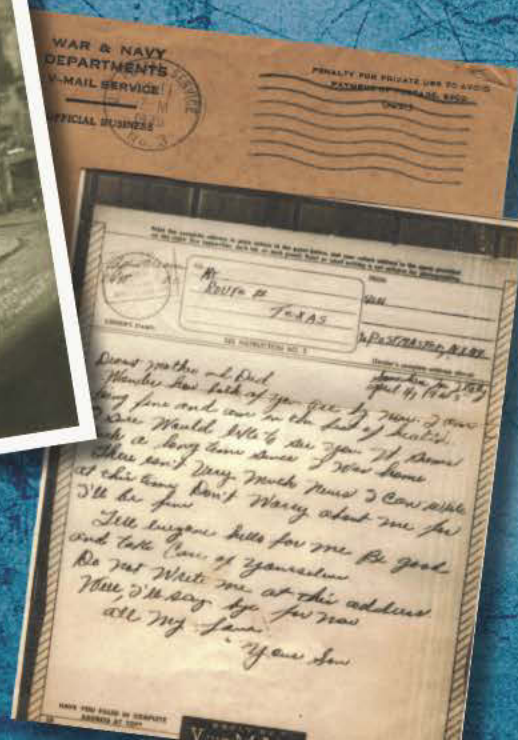 WAR & NAVY
DEPARTMENTS
V-MAIL SERVICE
OFFICIAL BUSINESS
PENALTY FOR PRIVATE USE TO AVOID
PAYMENT OF POSTAGE, $300
No. 3
Route #
Texas
Postmaster, N.Y. N.Y.
SEE INSTRUCTION NO. 2
Somewhere in Italy
April 1945
Dearest Mother and Dad
Wonder how both of you are by now. I am
feeling fine and am in the best of health.
I sure would like to see you. It seems
such a long time since I was home
There isn't very much news I can write
at this time Don't worry about me for
I'll be fine
Tell everyone hello for me Be good
and take care of yourselves
Do not write me at this address
Well, I'll say bye for now
all my love
Your Son
HAVE YOU FILLED IN COMPLETE
ADDRESS AT TOP?